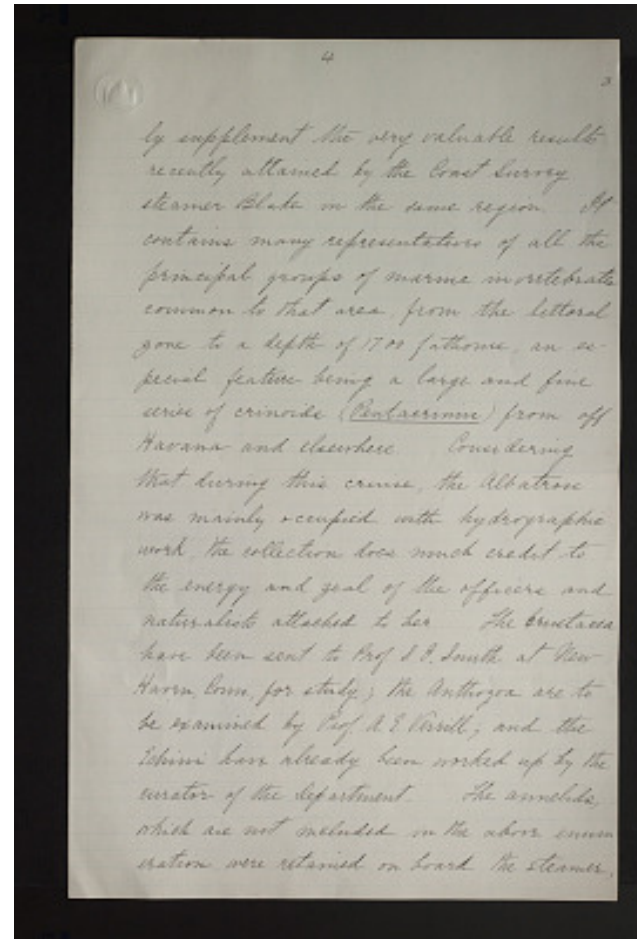 4
3
ly supplement the very valuable results
recently attained by the Coast Survey
steamer Blake in the same region. It
contains many representatives of all the
principal groups of marine invertebrates
common to that area, from the littoral
zone to a depth of 1700 fathoms, an es-
pecial feature being a large and fine
series of crinoids (Pentacrinus) from off
Havana and elsewhere. Considering
that during this cruise, the Albatross
was mainly occupied with hydrographic
work, the collection does much credit to
the energy and zeal of the officers and
naturalists attached to her. The crustacea
have been sent to Prof S. I. Smith at New
Haven, Conn, for study; the Anthozoa are to
be examined by Prof. A. E. Verrill; and the
Echini have already been worked up by the
curator of the department. The annelids,
which are not included in the above enum
eration were retained on board the steamer,